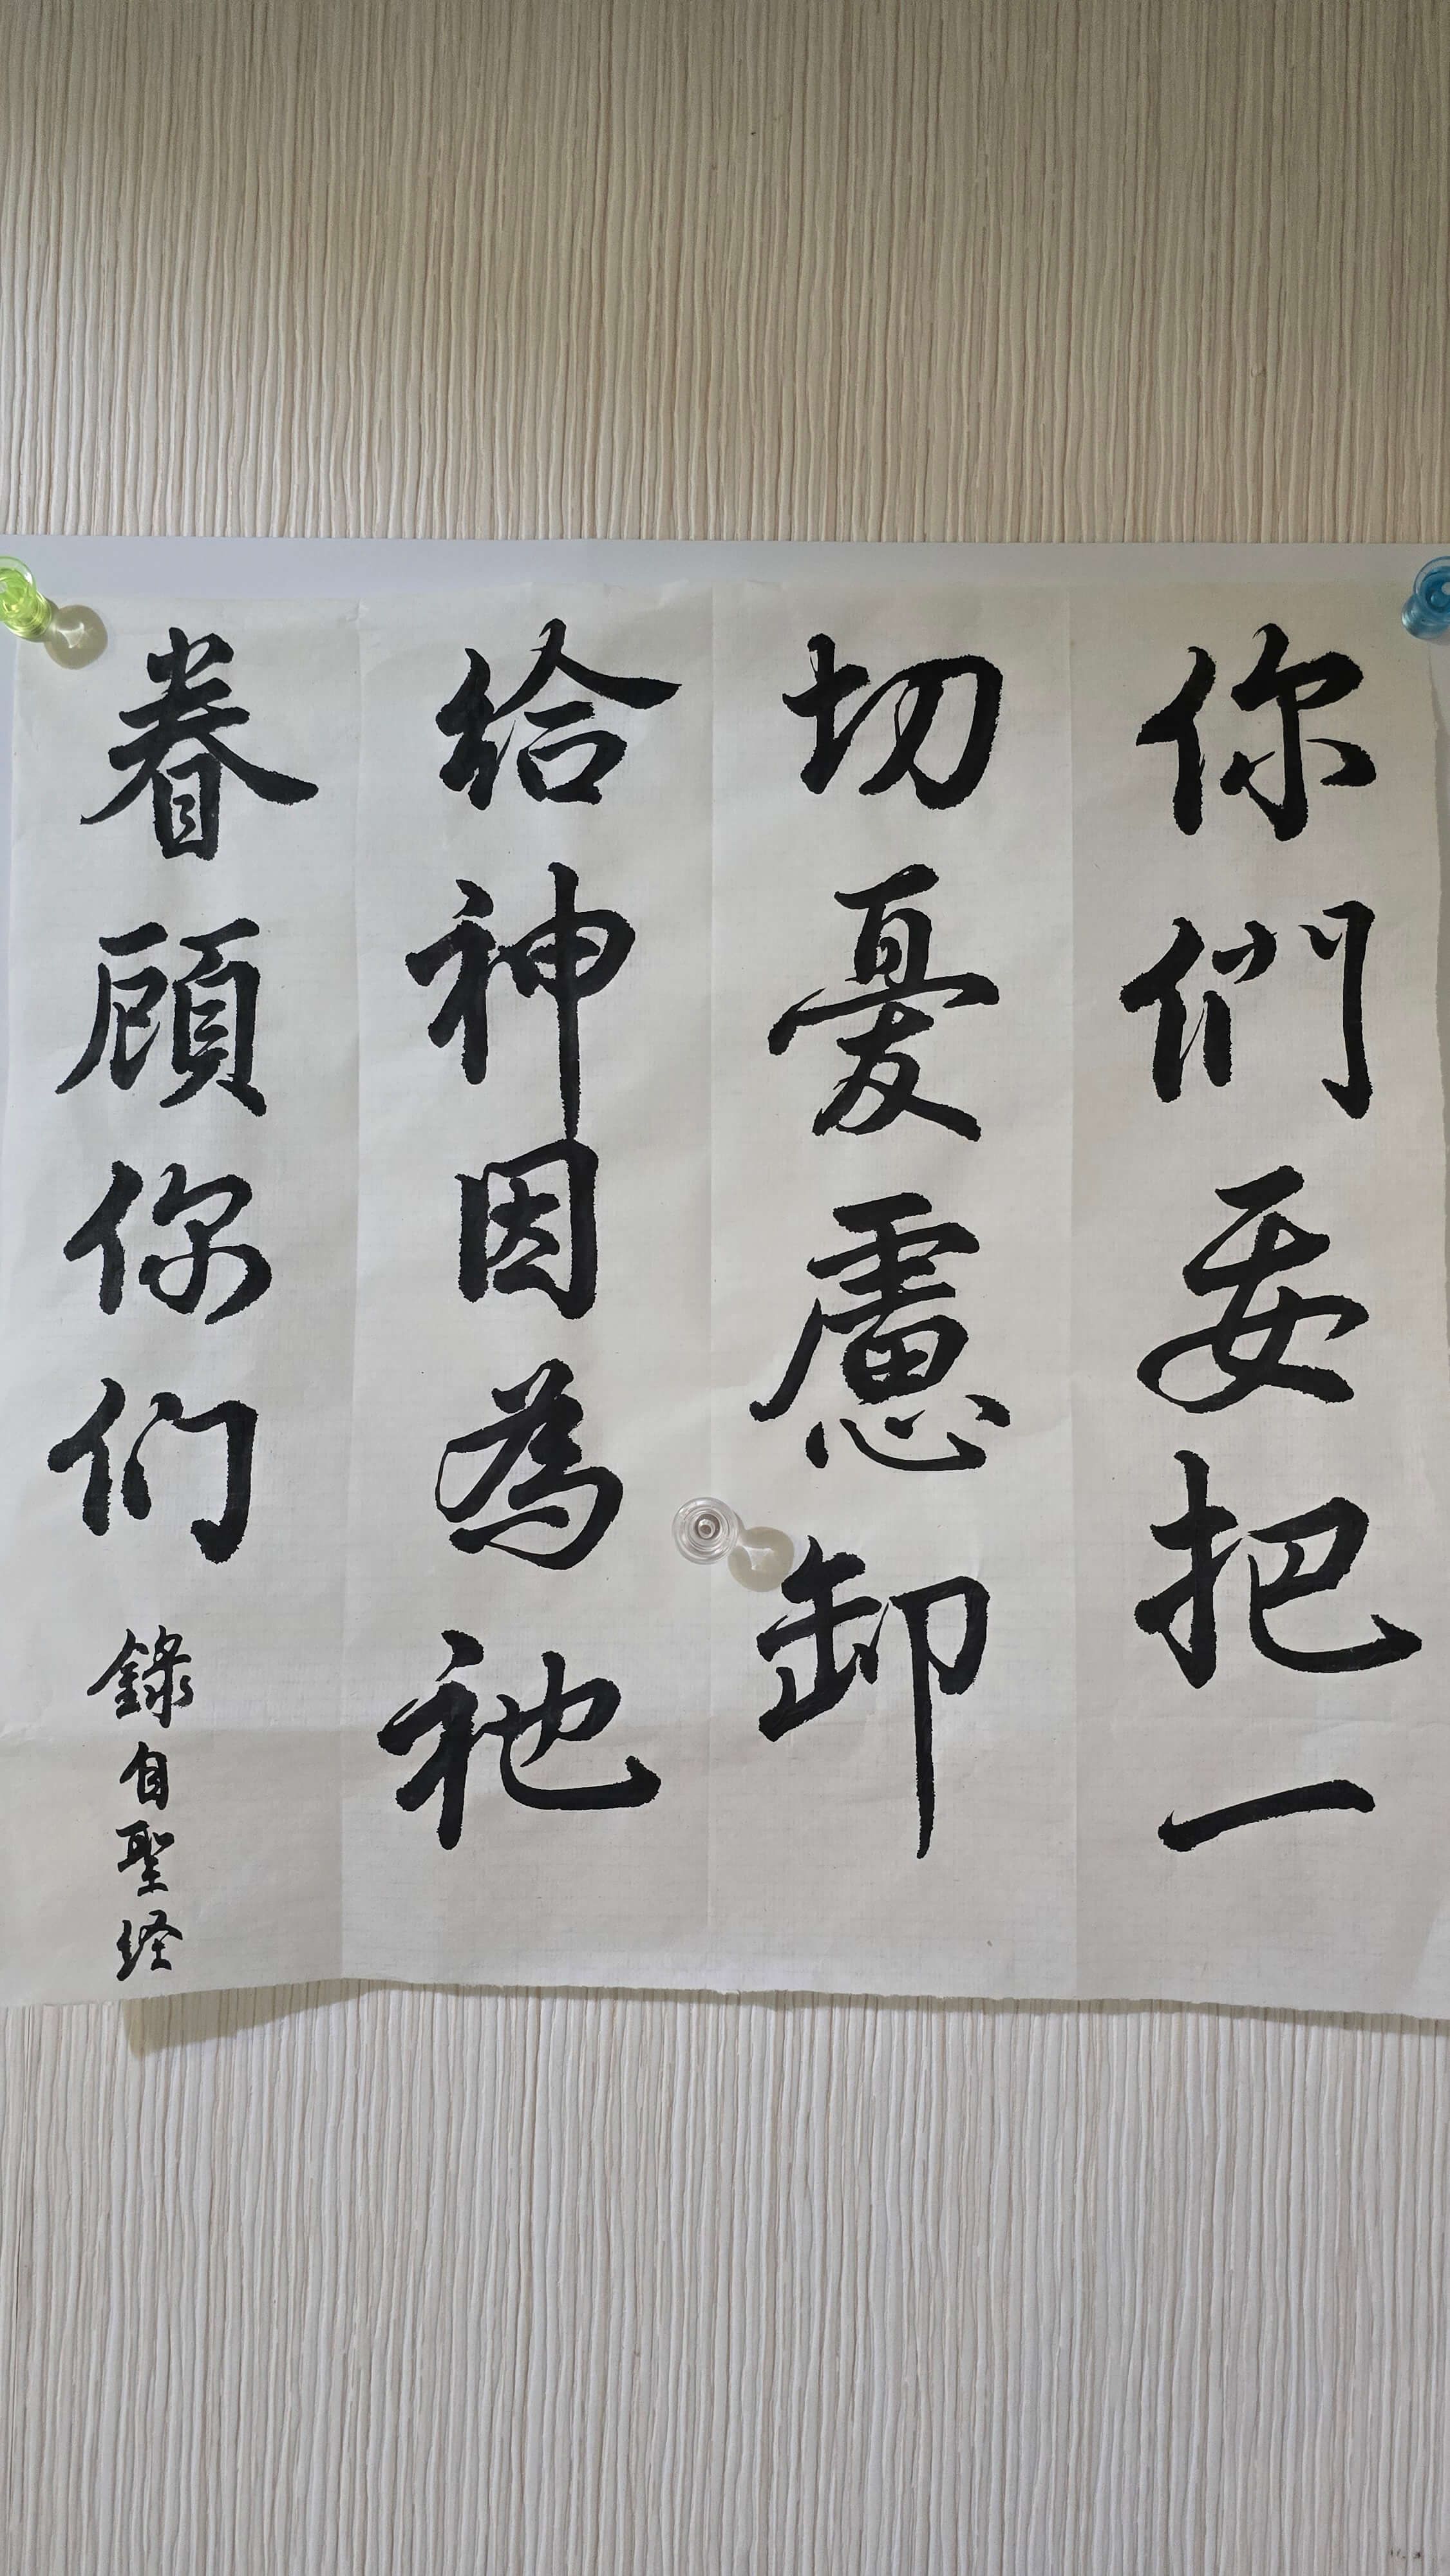 你們要把一
切憂慮卸
給神因為祂
眷顧你们
錄自聖経